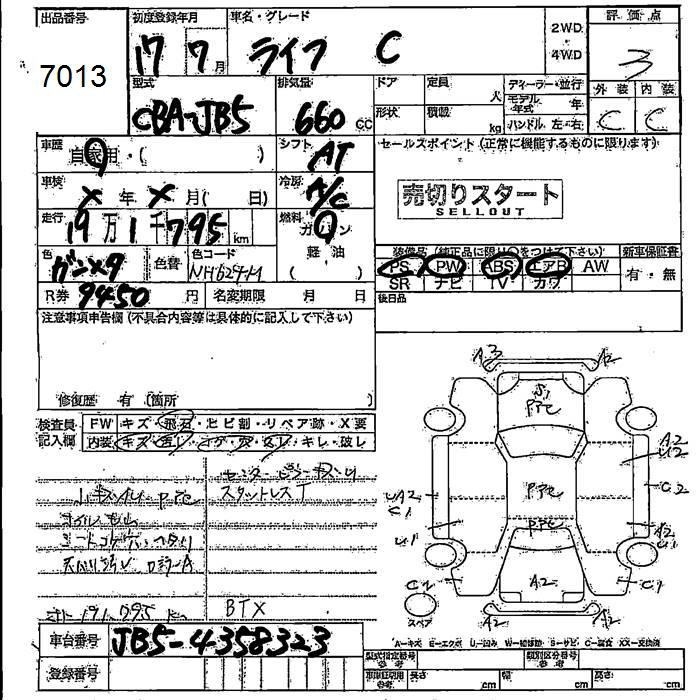 出品番号
7013
初度登録年月
17 7月
車名・グレード
ライフ C
2WD
4WD
評価点
3
外装 内装
C C
型式
CBA-JB5
排気量
660 CC
ドア
定員
人
ディーラー・並行
モデル年式 年
形状
積載
kg
ハンドル 左・右
車歴
自家用・( )
シフト
AT
車検
X年X月( 日)
冷房
A/C
走行
19万1千795km
燃料
ガソリン
軽油
( )
色
ガンメタ
色替
色コード
NH629-M
R券
9450円
名変期限 月 日
セールスポイント(正常に機能するものに限ります)
売切りスタート
SELLOUT
装備品(純正品に限り○をつけて下さい)
PS PW ABS エアB AW
SR ナビ TV カワ
新車保証書
有・無
後日品
注意事項申告欄(不具合内容等は具体的に記入して下さい)
修復歴 有(箇所 )
検査員記入欄
FW キズ・飛石・ヒビ割・リペア跡・X要
内装 キズ・汚レ・コゲ・穴・スレ・キレ・破レ
スタットレスT
191,795 km
BTX
A3 A2
S1
PPC
A2
U2
C2
PPC
UA2
C1
PPC
U1
A2
C2
C1
A2
スペア
A2
A-キズ E-エクボ U-凹み W-補修跡 S-サビ C-腐食 XX-交換済
車台番号
JB5-4358323
登録番号
型式指定番号
参考
類別区分番号
参考
車庫証明用
参考
長さ cm
幅 cm
高さ cm